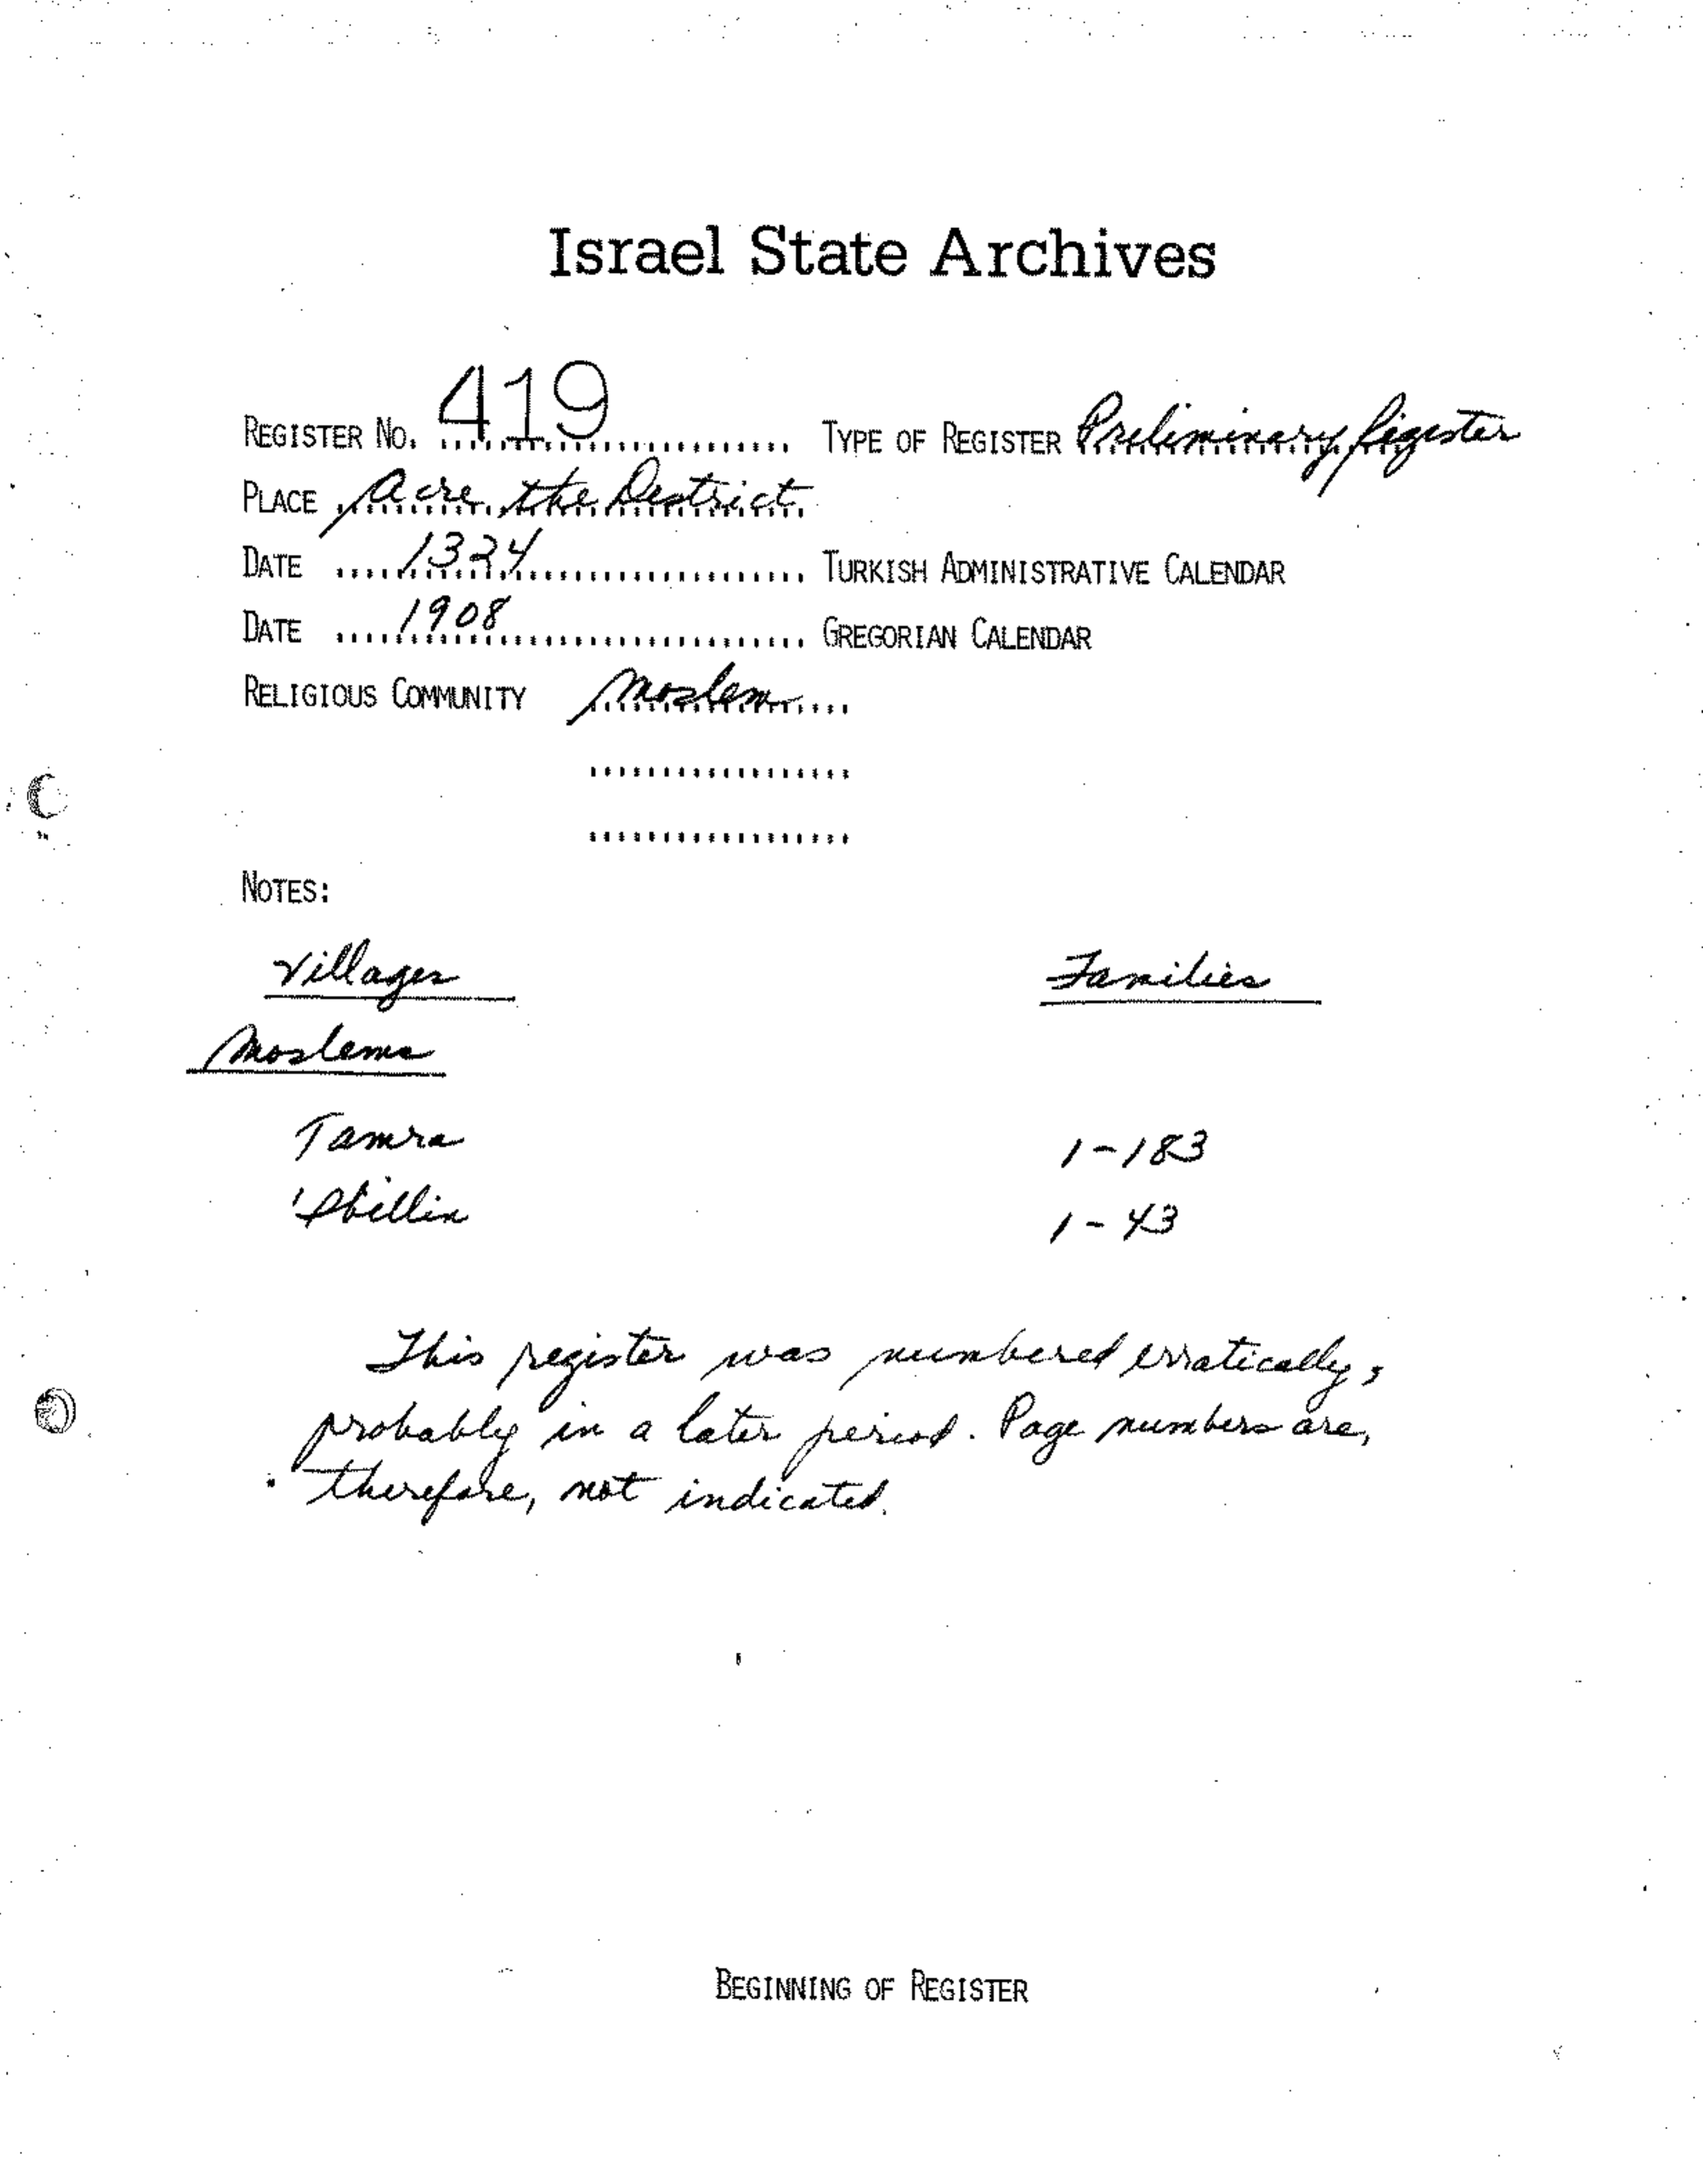 Israel State Archives
REGISTER NO. 419 TYPE OF REGISTER Preliminary Register
PLACE Acre, the District
DATE 1324 TURKISH ADMINISTRATIVE CALENDAR
DATE 1908 GREGORIAN CALENDAR
RELIGIOUS COMMUNITY Moslem
NOTES:
Villages Families
Moslems
Tamra 1-183
'Ibillin 1-43
This register was numbered erratically,
probably in a later period. Page numbers are,
therefore, not indicated.
BEGINNING OF REGISTER